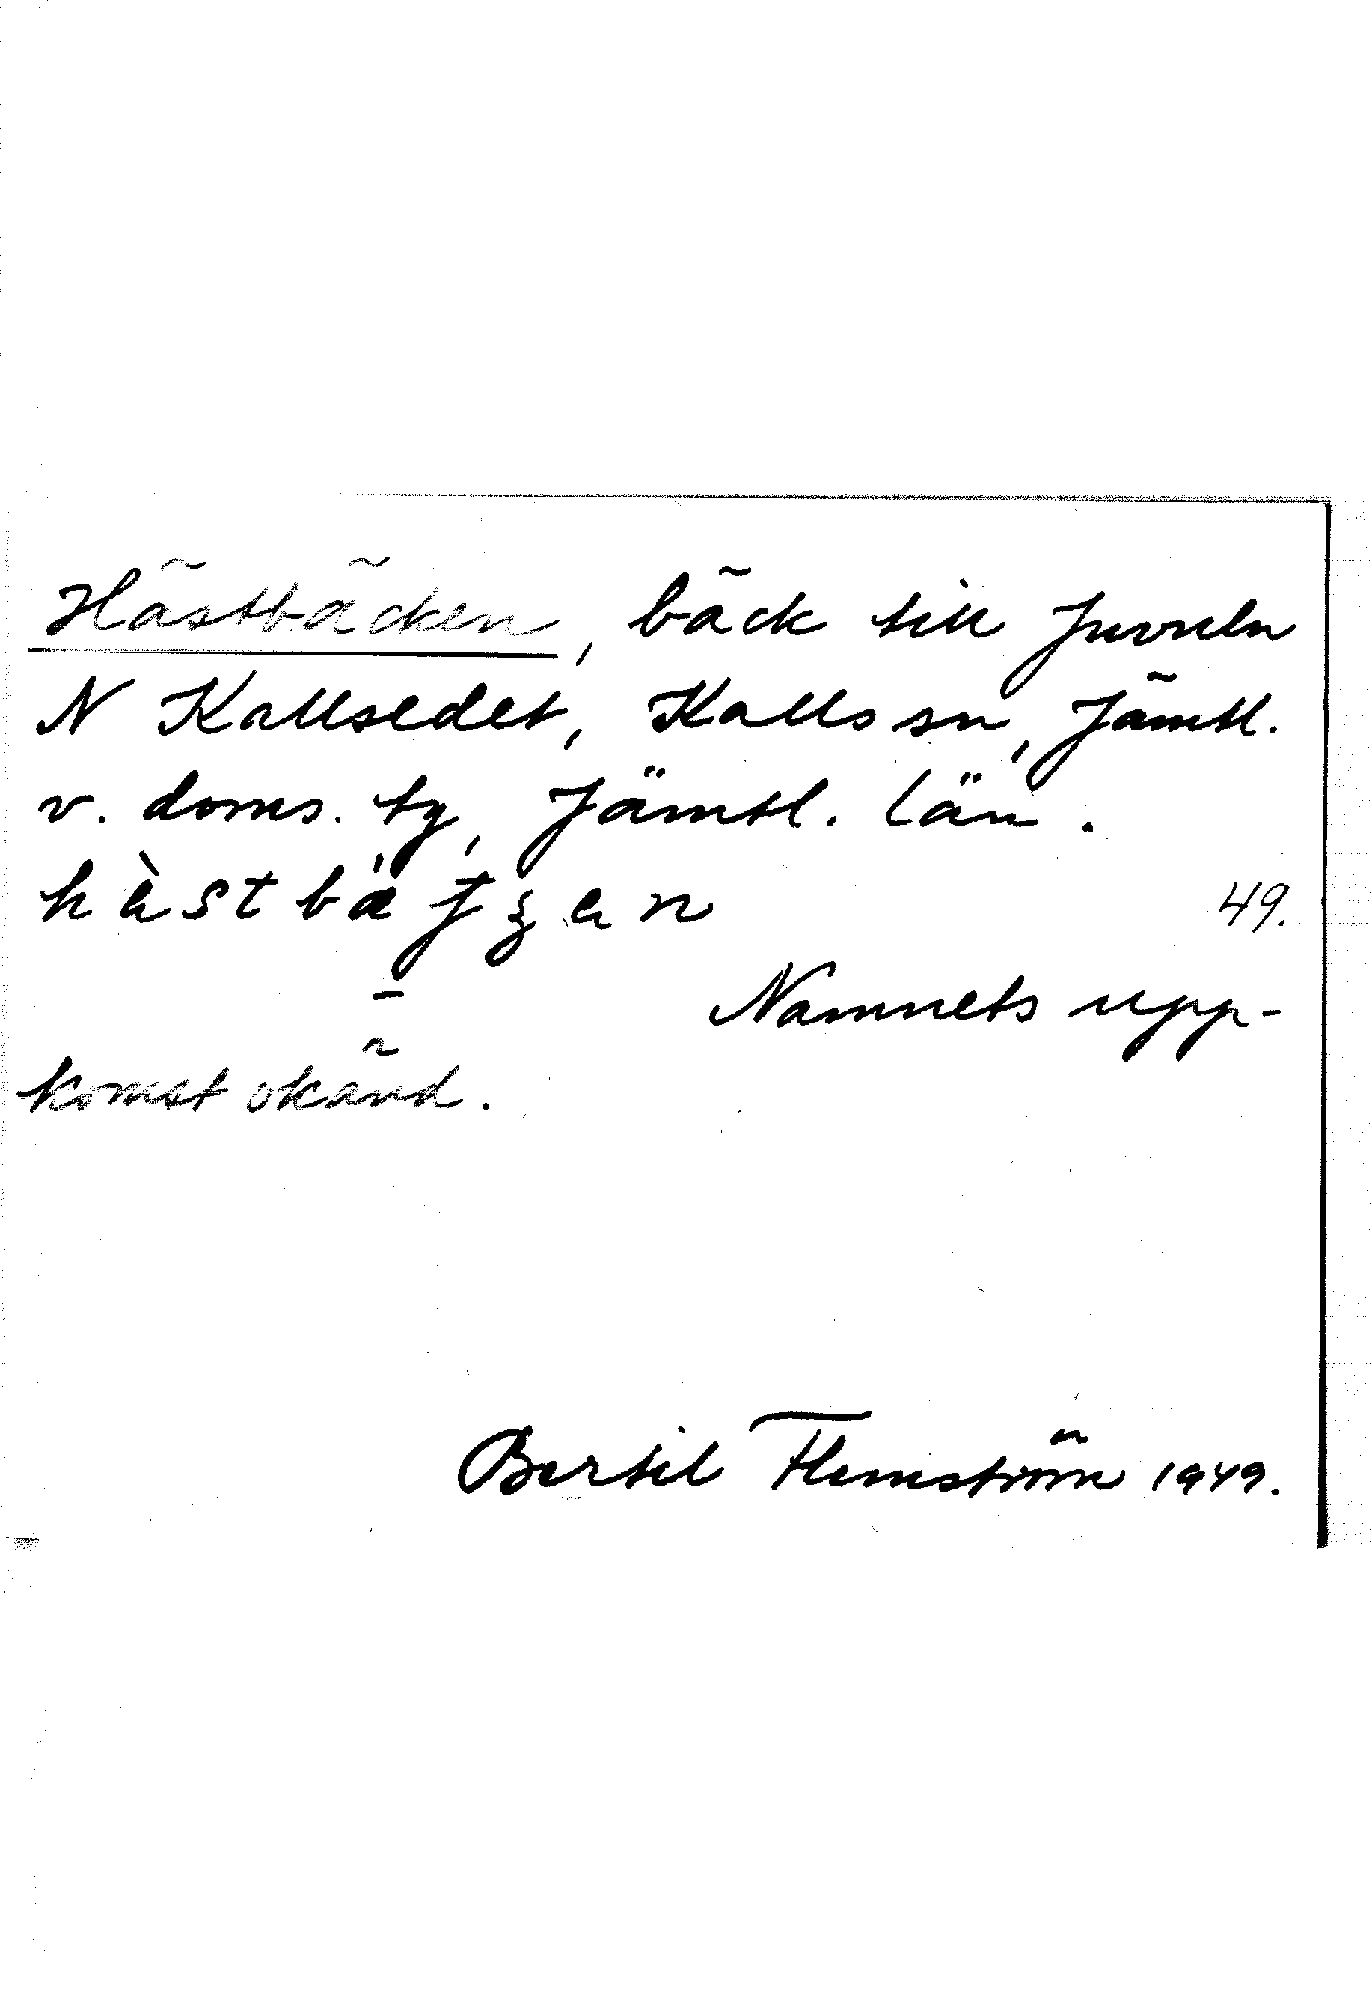 Hästbäcken, bäck till Juveln
N Kallsedet, Kalls sn, Jämtl.
v. doms. tg, Jämtl. län.
49.
Namnets upp-
komst okänd.
Bertil Flemström 1949.